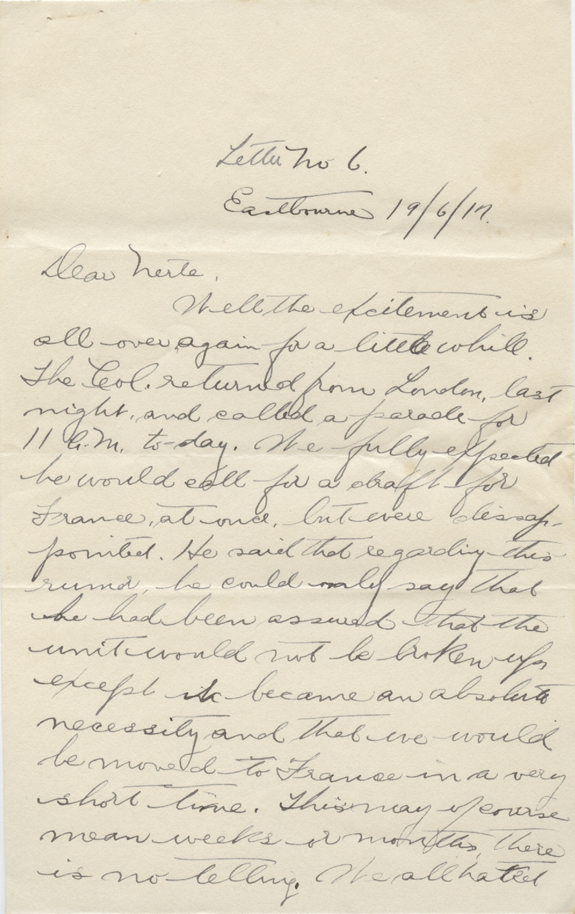 Letter No 6.
Eastbourne 19/6/17.
Dear Nerte.
Well the excitement is
all over again for a little while.
The Col. returned from London, last
night, and called a parade for
11 A.M. to-day. We fully expected
he would call for a draft for
France, at once, but were dissap-
pointed. He said that regarding this
rumor, he could only say that
he had been assured that the
unit would not be broken up
except it became an absolute
necessity and that we would
be moved to France in a very
short time. This may of course
mean weeks or months, there
is no telling. We all hated